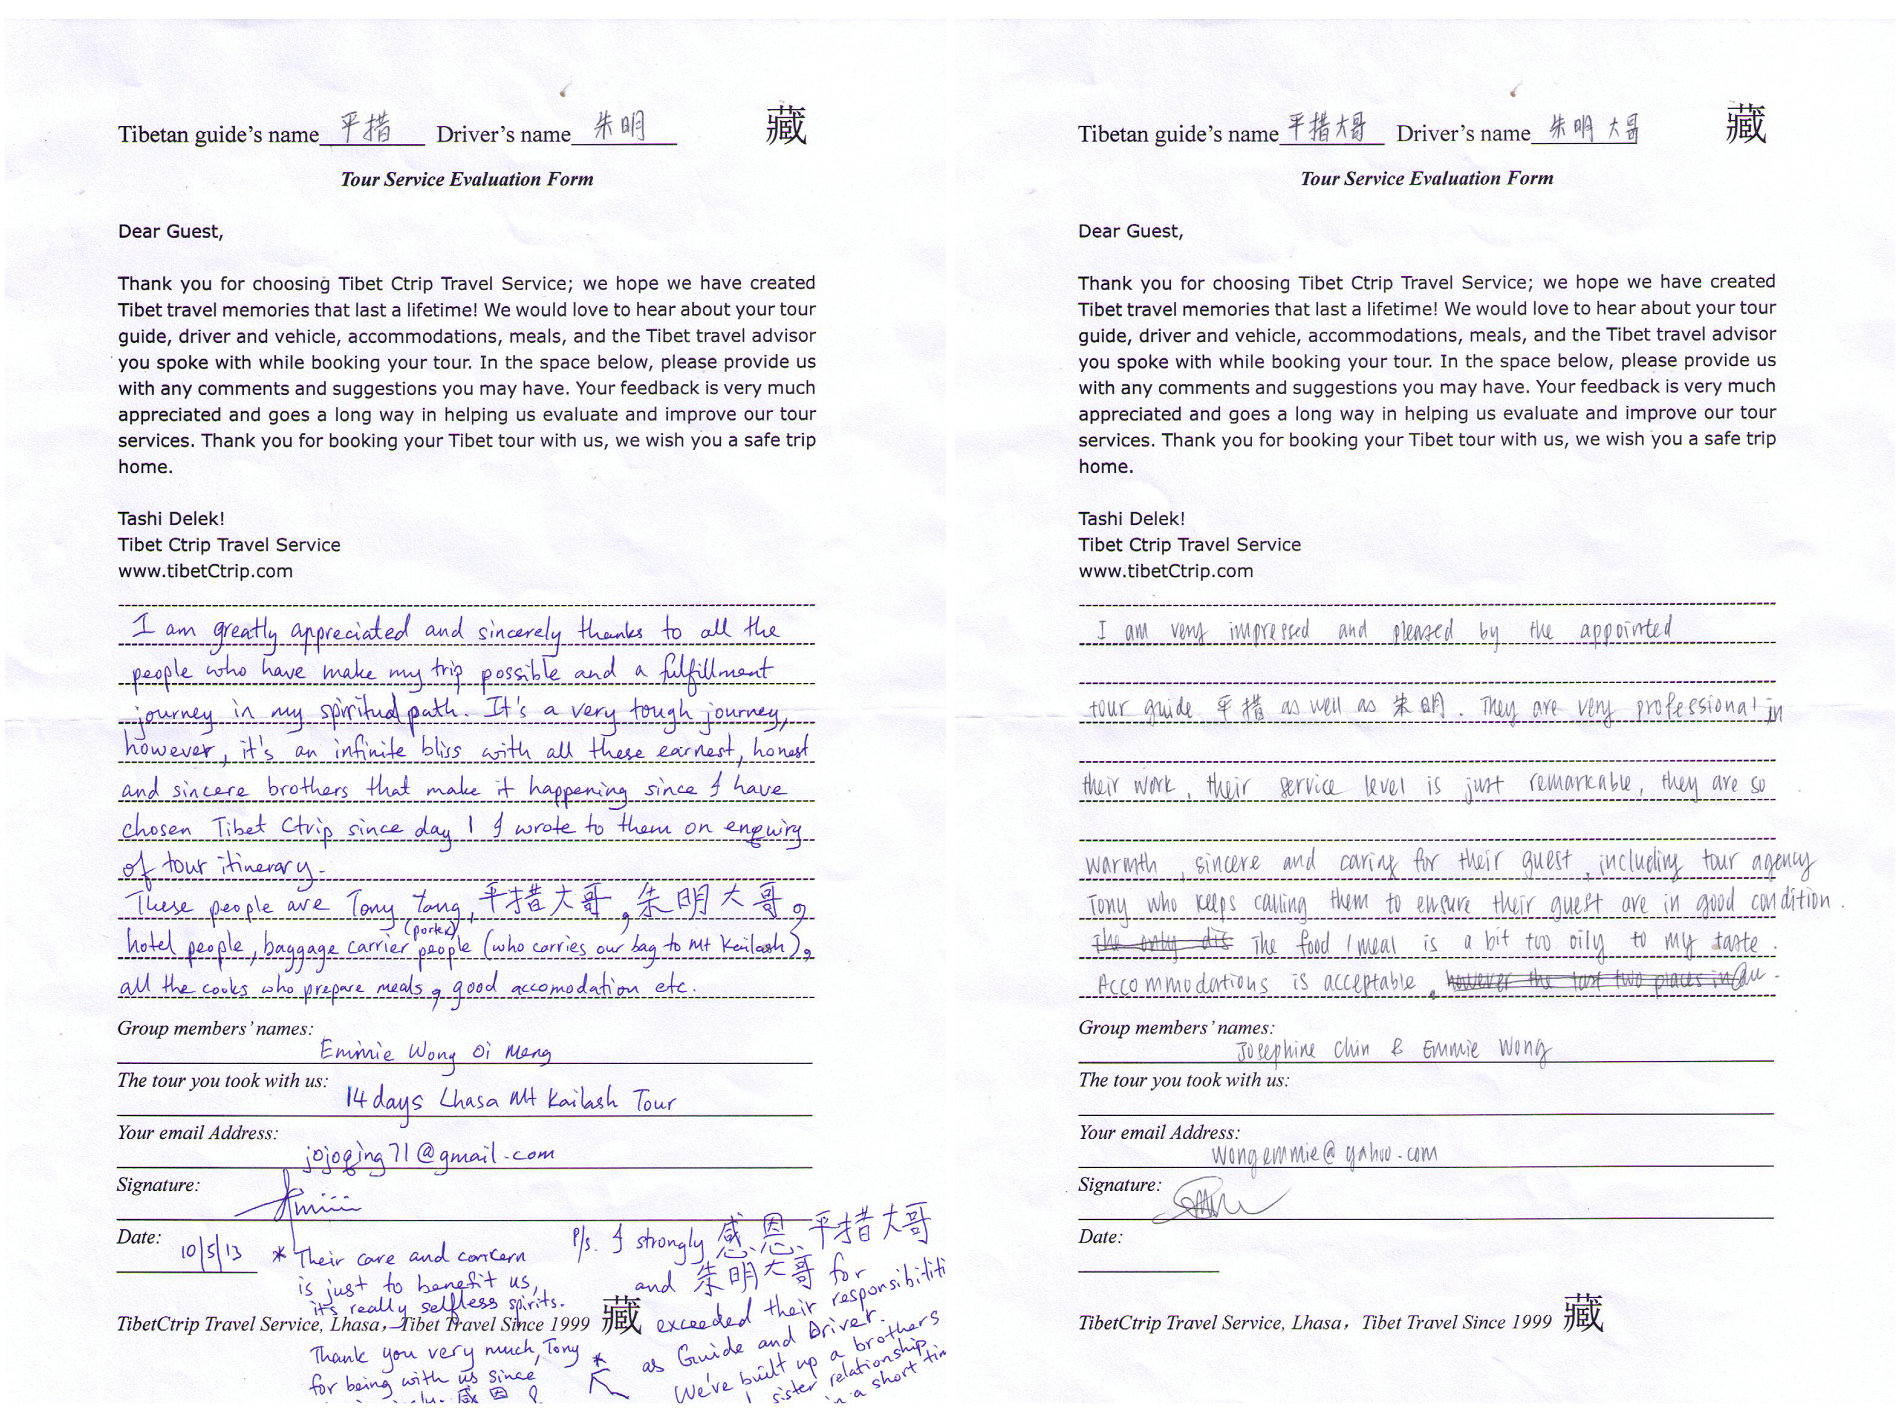 Tibetan guide's name 平措 Driver's name 朱明 藏
Tour Service Evaluation Form
Dear Guest,
Thank you for choosing Tibet Ctrip Travel Service; we hope we have created
Tibet travel memories that last a lifetime! We would love to hear about your tour
guide, driver and vehicle, accommodations, meals, and the Tibet travel advisor
you spoke with while booking your tour. In the space below, please provide us
with any comments and suggestions you may have. Your feedback is very much
appreciated and goes a long way in helping us evaluate and improve our tour
services. Thank you for booking your Tibet tour with us, we wish you a safe trip
home.
Tashi Delek!
Tibet Ctrip Travel Service
www.tibetCtrip.com
I am greatly appreciated and sincerely thanks to all the
people who have make my trip possible and a fulfillment
journey in my spiritual path. It's a very tough journey,
however, it's an infinite bliss with all these earnest, honest
and sincere brothers that make it happening since I have
chosen Tibet Ctrip since day 1 I wrote to them on enquiry
of tour itinerary.
These people are Tony Yang, 平措大哥, 朱明大哥,
(porter)
hotel people, baggage carrier people (who carries our bag to Mt Kailash),
all the cooks who prepare meals, good accomodation etc.
Group members' names:
Emmie Wong Oi Meng
The tour you took with us:
14 days Lhasa Mt Kailash Tour
Your email Address:
jojoqing71@gmail.com
Signature:
Date: 10/5/13
* Their care and concern
is just to benefit us,
it's really selfless spirits.
TibetCtrip Travel Service, Lhasa, Tibet Travel Since 1999 藏
Thank you very much, Tony *
for being with us since
感恩!
P/s. I strongly 感恩 平措大哥
and 朱明大哥 for
exceeded their responsibiliti
as Guide and Driver.
We've built up a brothers
sister relationship
in a short tim
Tibetan guide's name 平措大哥 Driver's name 朱明大哥 藏
Tour Service Evaluation Form
Dear Guest,
Thank you for choosing Tibet Ctrip Travel Service; we hope we have created
Tibet travel memories that last a lifetime! We would love to hear about your tour
guide, driver and vehicle, accommodations, meals, and the Tibet travel advisor
you spoke with while booking your tour. In the space below, please provide us
with any comments and suggestions you may have. Your feedback is very much
appreciated and goes a long way in helping us evaluate and improve our tour
services. Thank you for booking your Tibet tour with us, we wish you a safe trip
home.
Tashi Delek!
Tibet Ctrip Travel Service
www.tibetCtrip.com
I am very impressed and pleased by the appointed
tour guide 平措 as well as 朱明. They are very professional in
their work, their service level is just remarkable, they are so
warmth, sincere and caring for their guest, including tour agency
Tony who keeps calling them to ensure their guest are in good condition.
The only dis The food/meal is a bit too oily to my taste.
Accommodations is acceptable, however the last two places in
Group members' names:
Josephine Chin & Emmie Wong
The tour you took with us:
Your email Address:
wongemmie@yahoo.com
Signature:
Date:
TibetCtrip Travel Service, Lhasa, Tibet Travel Since 1999 藏